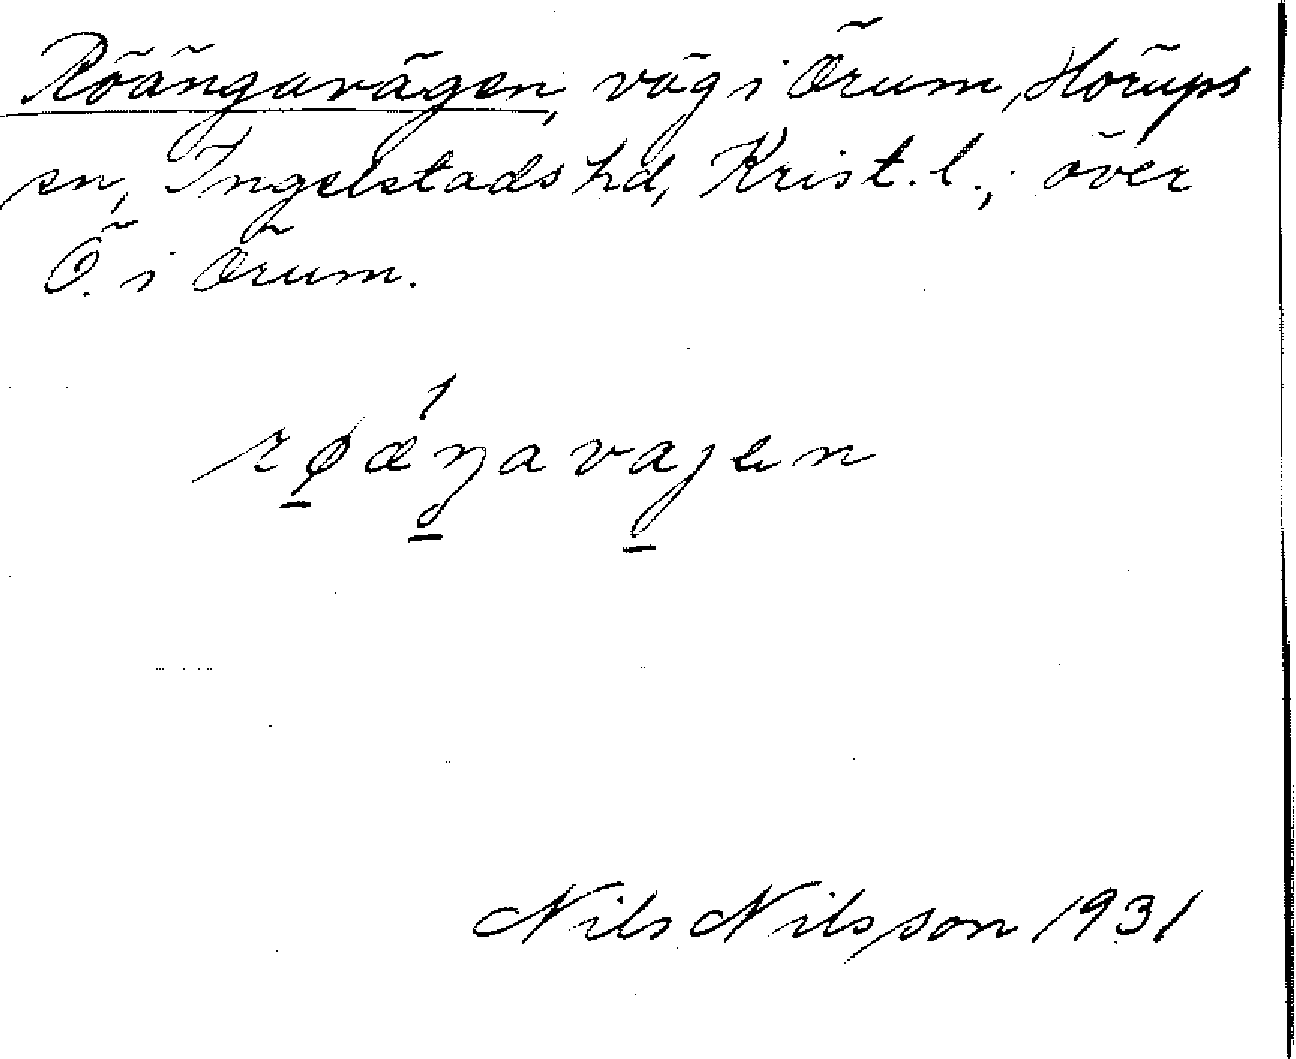 Röängavägen, väg i Örum, Hörups
sn, Ingelstads hd, Krist. l., över
Ö. i Örum.
røæŋavajen
Nils Nilsson 1931